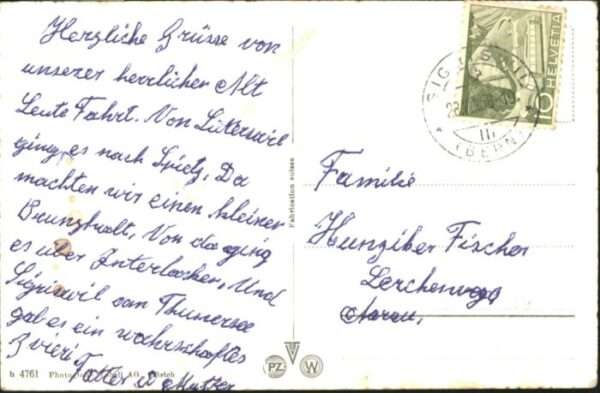 Herzliche Grüsse von
unserer herrlichen Alt
Leute Fahrt. Von Lüterswil
ging es nach Spiez, Da
machten wir einen kleinen
Brunzhalt, Von da ging
es über Interlacken, Und
Sigriswil am Thunersee
gab es ein währschaftes
Zvieri
Vatter u Mutter
h 4761 Photo AG.
Fabrication suisse
PZ W
HELVETIA
SIGRISWIL
(BERN)
Familie
Hunziker Fischer
Lerchenweg
Aarau,